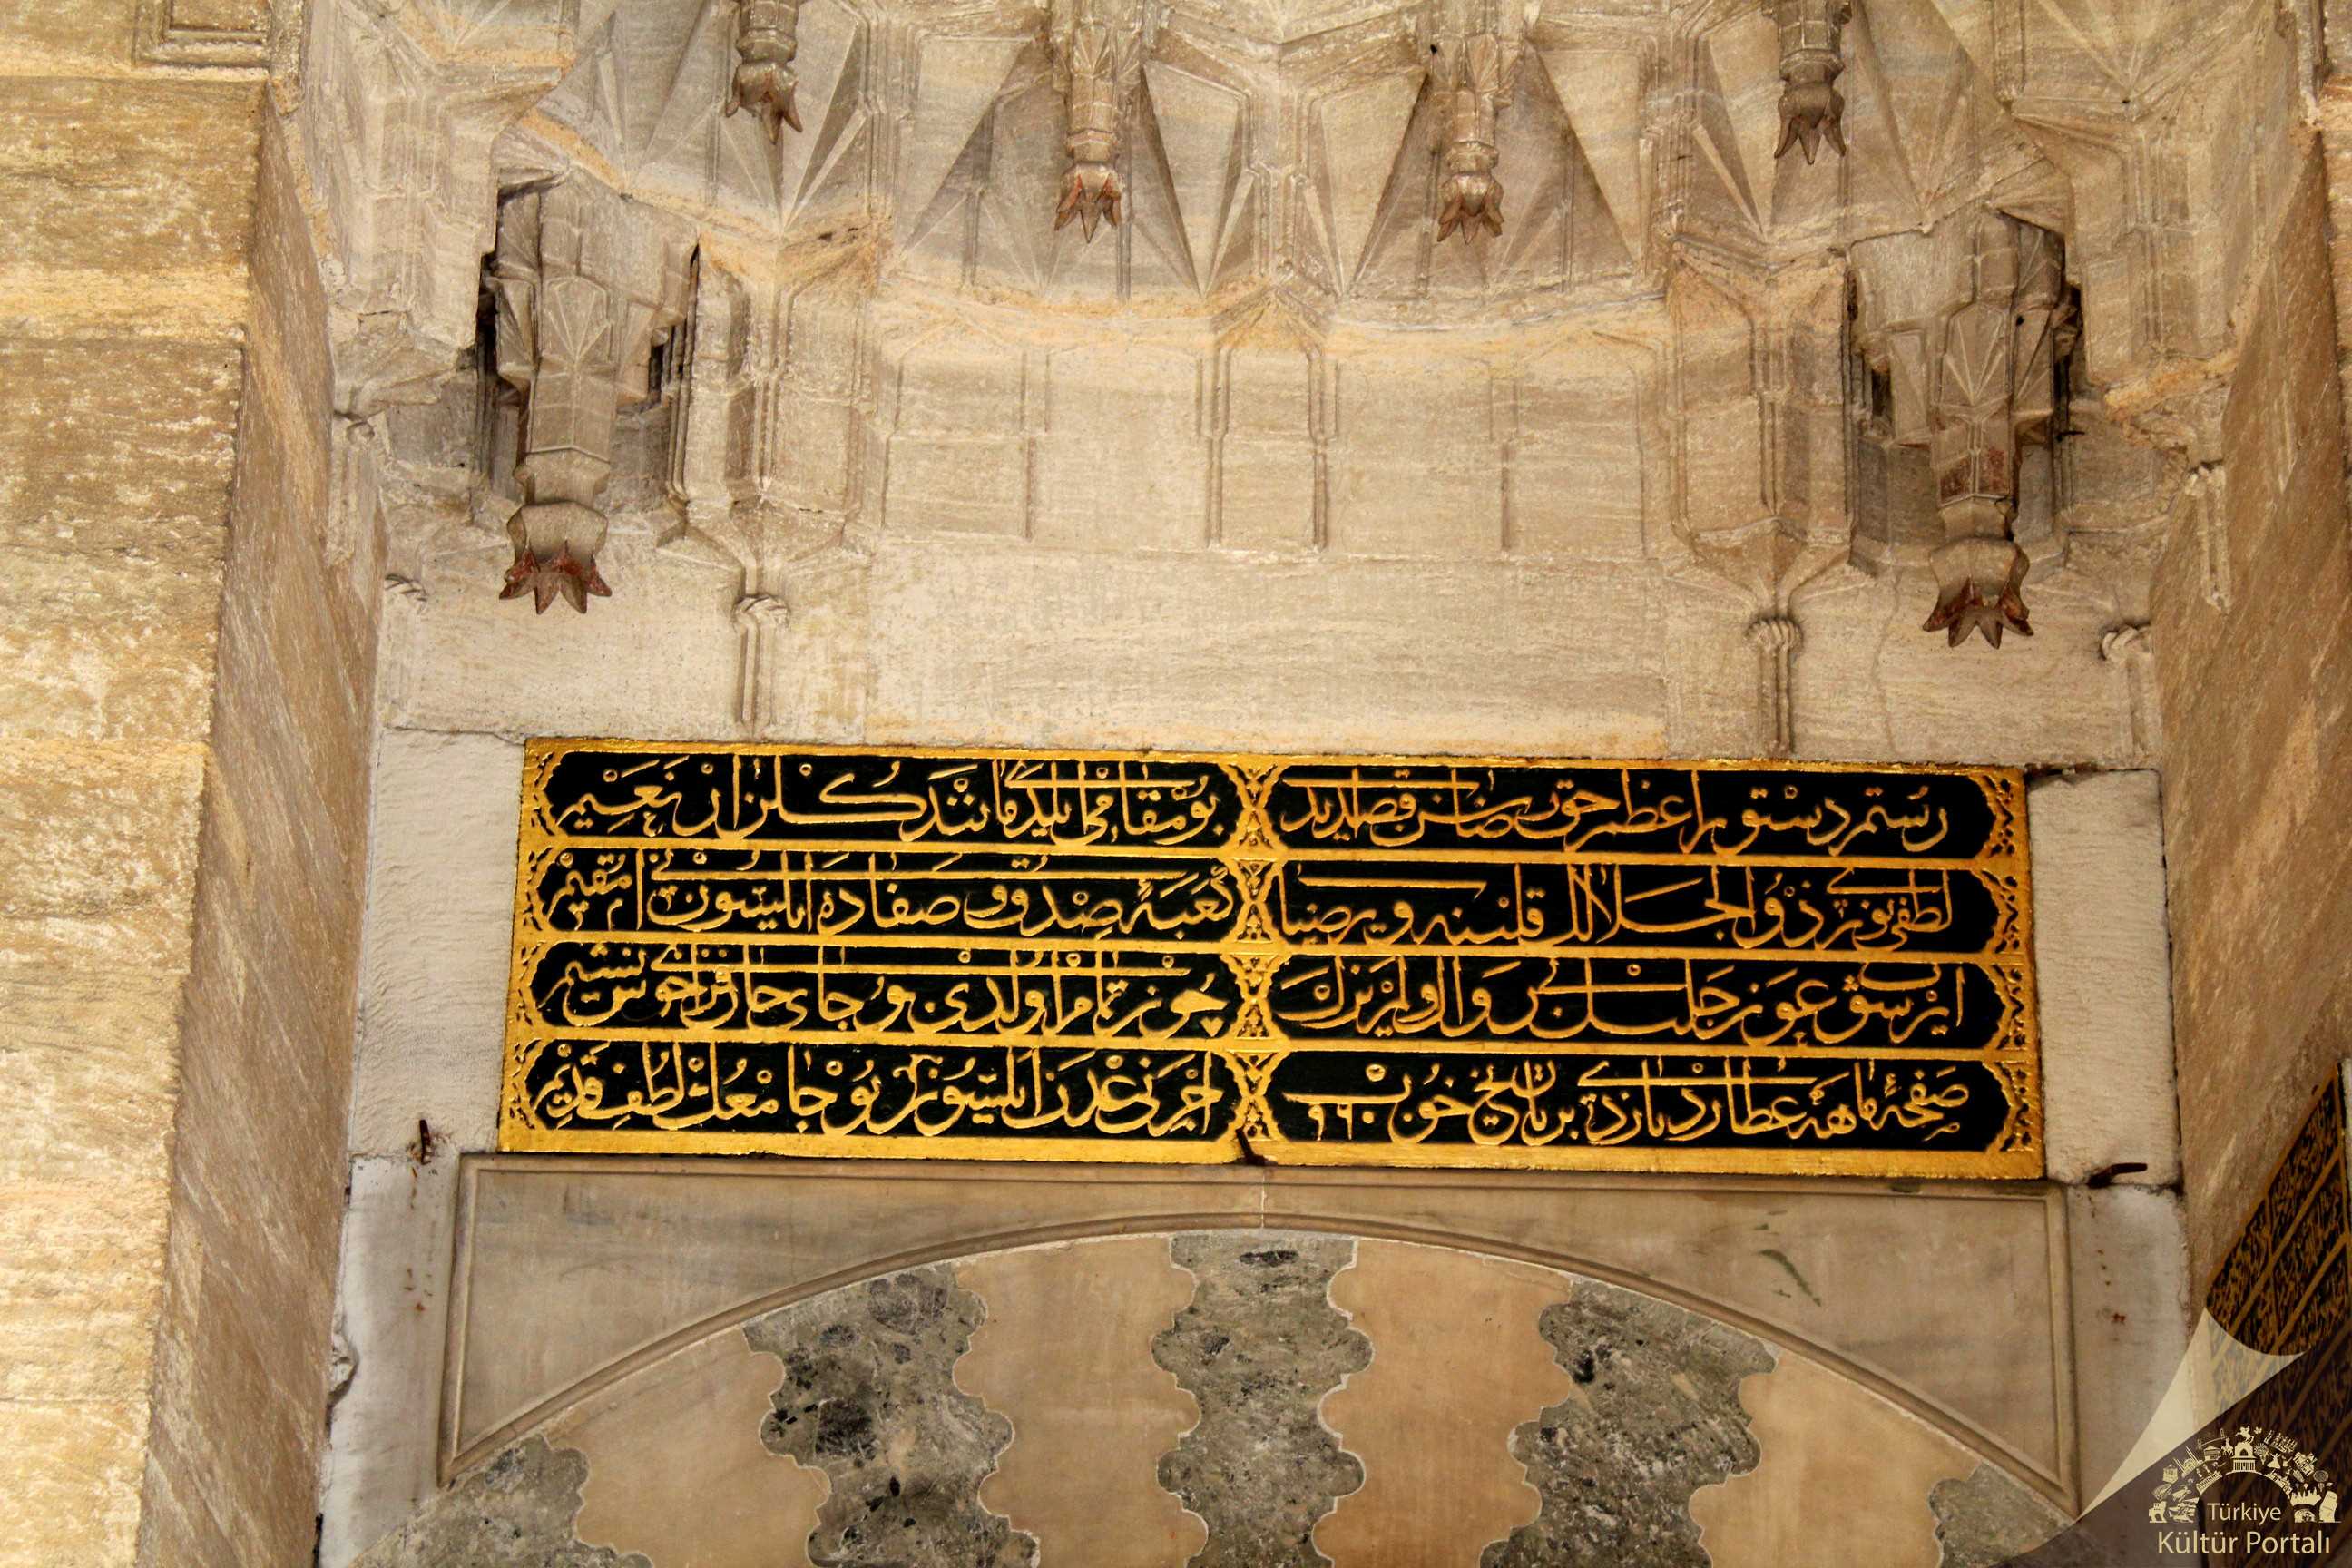 رستم دستور اعظم حق رضاسن قصد ایدب
بو مقامی ایلدی مانند گلزار نعیم
لطفی نوری ذو الجلالك قلبنه ویر ضیا
کعبهٔ صدق و صفاده ایلسون انی مقیم
ایرشوب عون جلیلی
چون تمام اولدی بو جای جانفزای خوش نشیم
صفحهٔ ماهه عطارد یازدی بر تاریخ خوب ٩٦٠
اجرنی عدن ایلیسور بو جامعك لطف قدیم
Türkiye
Kültür Portalı